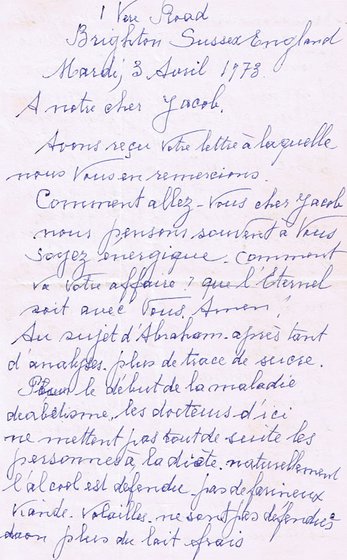 1 Vere Road
Brighton Sussex England
Mardi, 3 Avril 1973.
A notre cher Jacob.
Avons reçu votre lettre à laquelle
nous vous en remercions.
Comment allez-vous cher Jacob
nous pensons souvent à Vous
soyez energique. Comment
va votre affaire? que l'Eternel
soit avec Vous, Amen!
Au sujet d'Abraham. après tant
d'analyses. plus de trace de sucre.
Pour le début de la maladie
diabétisme, les docteurs d'ici
ne mettent pas tout de suite les
personnes à la diète. naturellement
l'alcool est défendu. pas de farineux
viande. volailles. ne sont pas défendues
non plus du lait frais